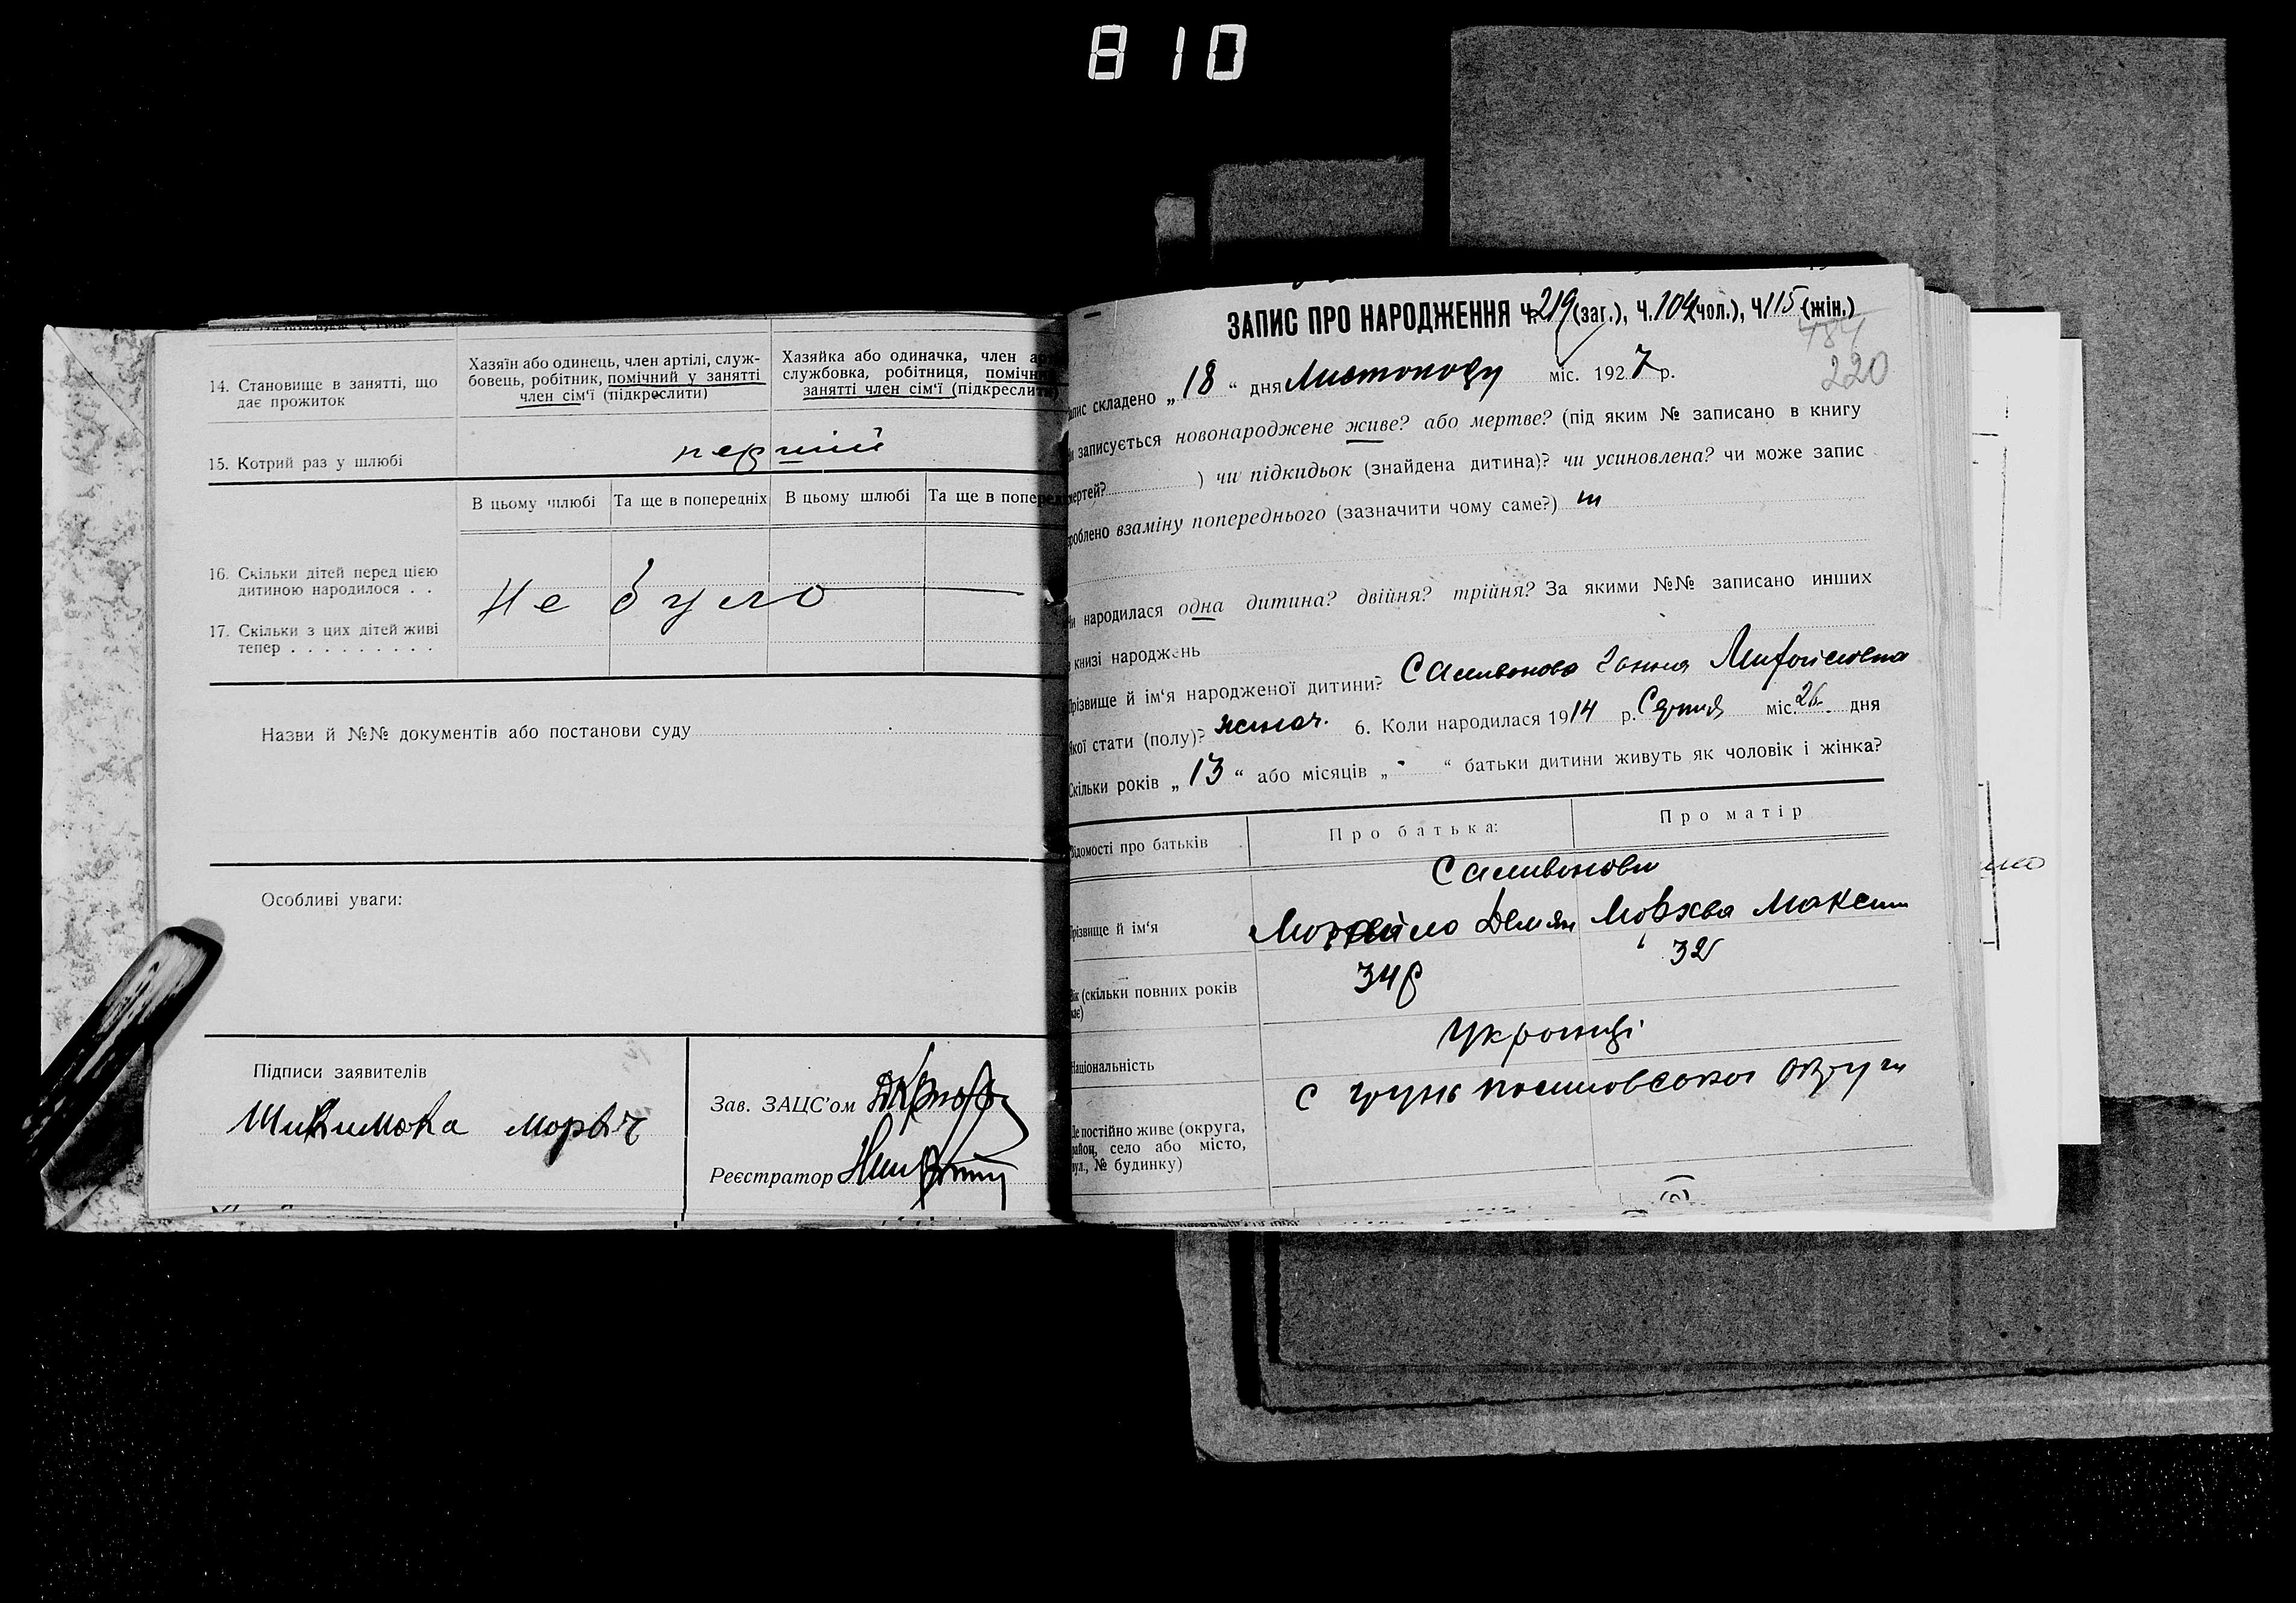 810
14. Становище в занятті, що дає прожиток
Хазяїн або одинець, член артілі, служ-
бовець, робітник, помічний у занятті
член сім'ї (підкреслити)
Хазяйка або одиначка, член
службовка, робітниця,
занятті член сім'ї (підкреслити)
15. Котрий раз у шлюбі
перший
В цьому шлюбі
Та ще в попередніх
В цьому шлюбі
Та ще в
16. Скільки дітей перед цією
дитиною народилося . .
17. Скільки з цих дітей живі
тепер . . . . . . . . .
Не було
Назви й №№ документів або постанови суду
Особливі уваги:
Підписи заявителів
Зав. ЗАЦС'ом
Реєстратор
ЗАПИС ПРО НАРОДЖЕННЯ Ч. 219 (заг.), Ч. 104 (чол.), Ч 115 (жін.)
220
складено „ 18 “ дня Листопаду міс. 1927 р.
записується новонароджене живе? або мертве? (під яким № записано в книгу
) чи підкидьок (знайдена дитина)? чи усиновлена? чи може запис
взаміну попереднього (зазначити чому саме?)
народилася одна дитина? двійня? трійня? За якими №№ записано инших
книзі народжень
ім'я народженої дитини? Саливонова Ганна
стати (полу)? 6. Коли народилася 1914 р. Серпня міс. 26 дня
років „ 13 “ або місяців „ - “ батьки дитини живуть як чоловік і жінка?
про батьків
Про батька:
Про матір
Саливонови
й ім'я
Демян
Максим
(скільки повних років
34 р
32
Українці
постійно живе (округа,
село або місто,
№ будинку)
с округи